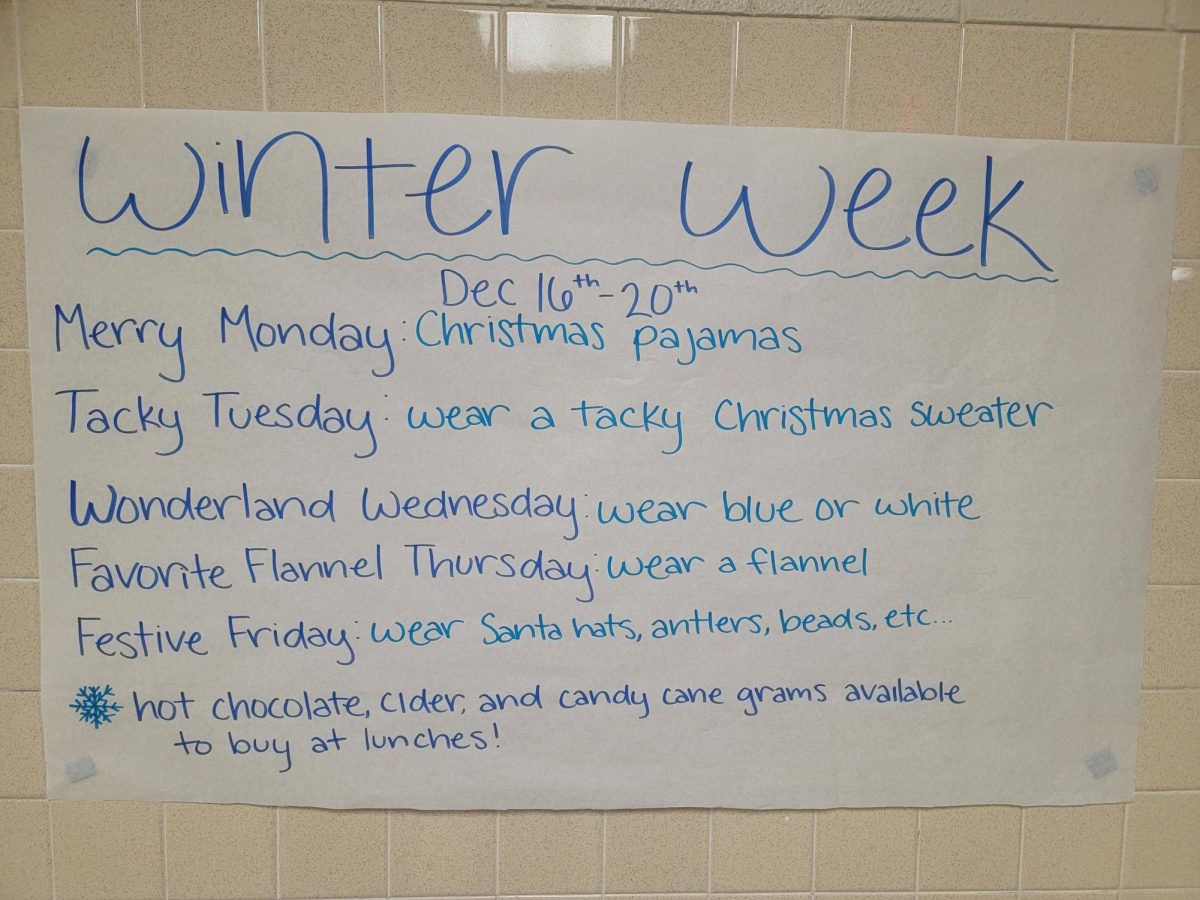 Winter Week
Dec 16th-20th
Merry Monday: Christmas pajamas
Tacky Tuesday: wear a tacky Christmas sweater
Wonderland Wednesday: wear blue or white
Favorite Flannel Thursday: wear a flannel
Festive Friday: wear Santa hats, antlers, beads, etc...
hot chocolate, cider, and candy cane grams available
to buy at lunches!